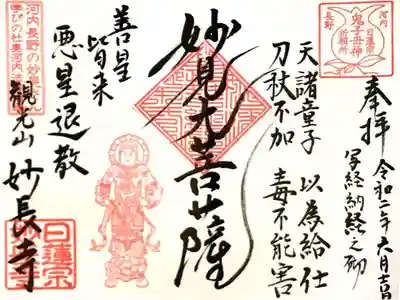 河内
日蓮宗
鬼子母神
祈願所
長野
奉拝 令和二年六月吉日
写経納経之砌
天諸童子 以為給仕
刀杖不加 毒不能害
妙見大菩薩
善星
皆来
悪星退散
河内長野の妙見さん
学びの社 奥河内
観光山 妙長寺
日蓮宗